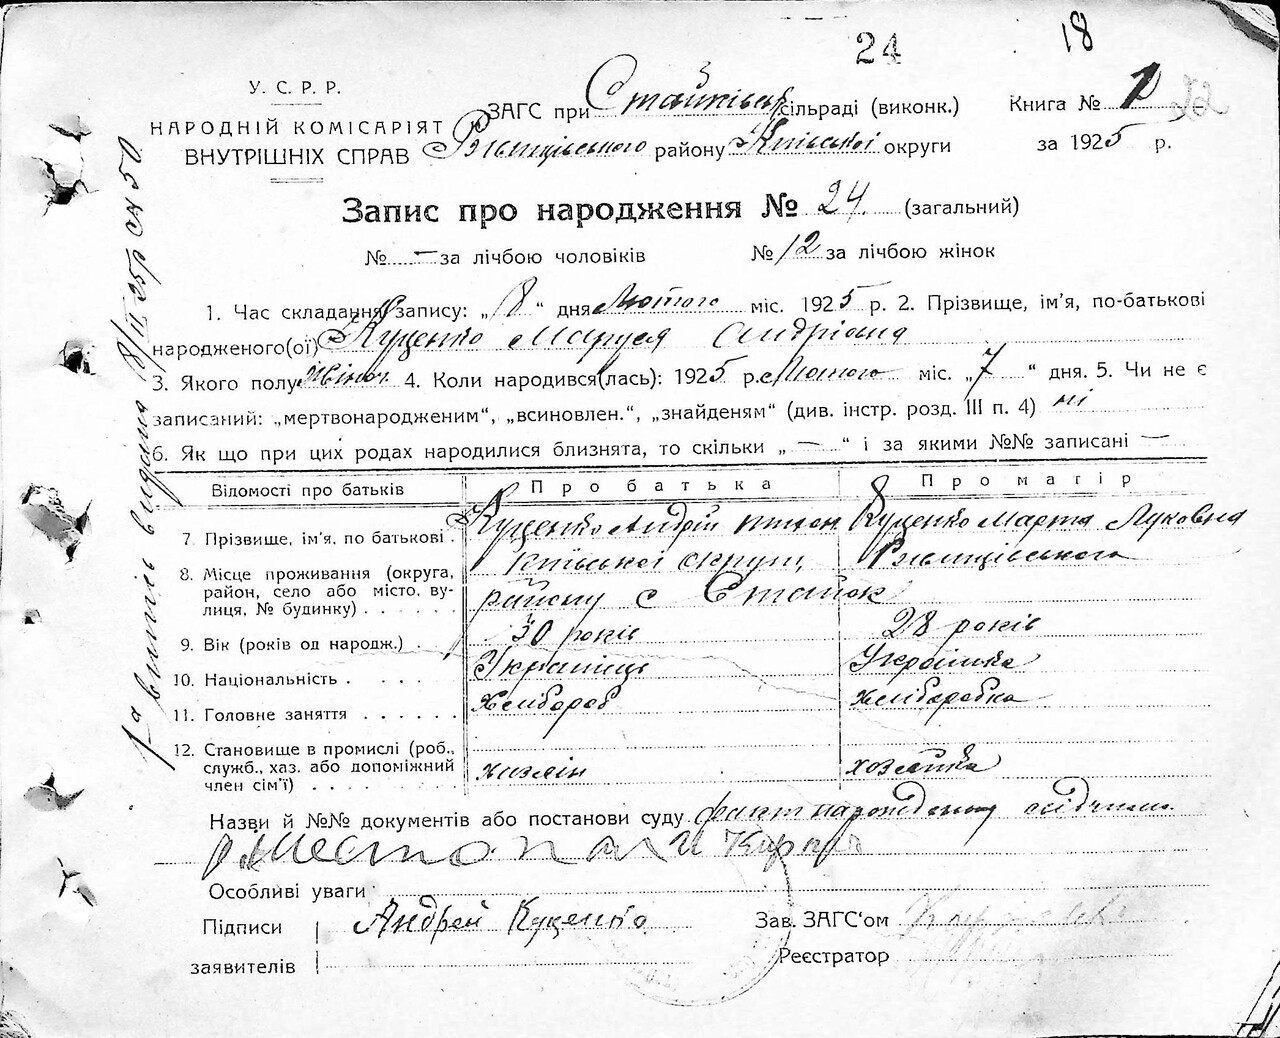 24
18
У. С. Р. Р.
НАРОДНІЙ КОМІСАРІЯТ
ВНУТРІШНІХ СПРАВ
ЗАГС при Стайківськ сільраді (виконк.)
Ржищівського району Київської округи
Книга № 1
за 1925 р.
Запис про народження № 24. (загальний)
№ — за лічбою чоловіків № 12 за лічбою жінок
1. Час складання запису: „ 8 “ дня Лютого міс. 1925 р. 2. Прізвище, ім'я, по-батькові
народженого(ої) Куценко Маруся Андріана
3. Якого полу жіноч 4. Коли народився(лась): 1925 р. Лютого міс. „ 7 “ дня. 5. Чи не є
записаний: „мертвонародженим“, „всиновлен.“, „знайденям“ (див. інстр. розд. III п. 4) ні
6. Як що при цих родах народилися близнята, то скільки „ — “ і за якими №№ записані —
Відомості про батьків Про батька Про матір
7. Прізвище, ім'я, по батькові. Куценко Андрій Куценко Марта Луковна
8. Місце проживання (округа, район, село або місто, вулиця, № будинку) Київської округи, Ржищівського
району с Стайок
9. Вік (років од народж.) 30 років 28 років
10. Національність Українець Українка
11. Головне заняття Хлібороб хліборобка
12. Становище в промислі (роб., служб., хаз. або допоміжний член сім'ї) хазяїн хозяйка
Назви й №№ документів або постанови суду факт народження свідчили
Шестопал и Карп
Особливі уваги
Підписи Андрей Куценко Зав. ЗАГС'ом
заявителів Реєстратор
1-а випись видана 8/II 25р СА 50